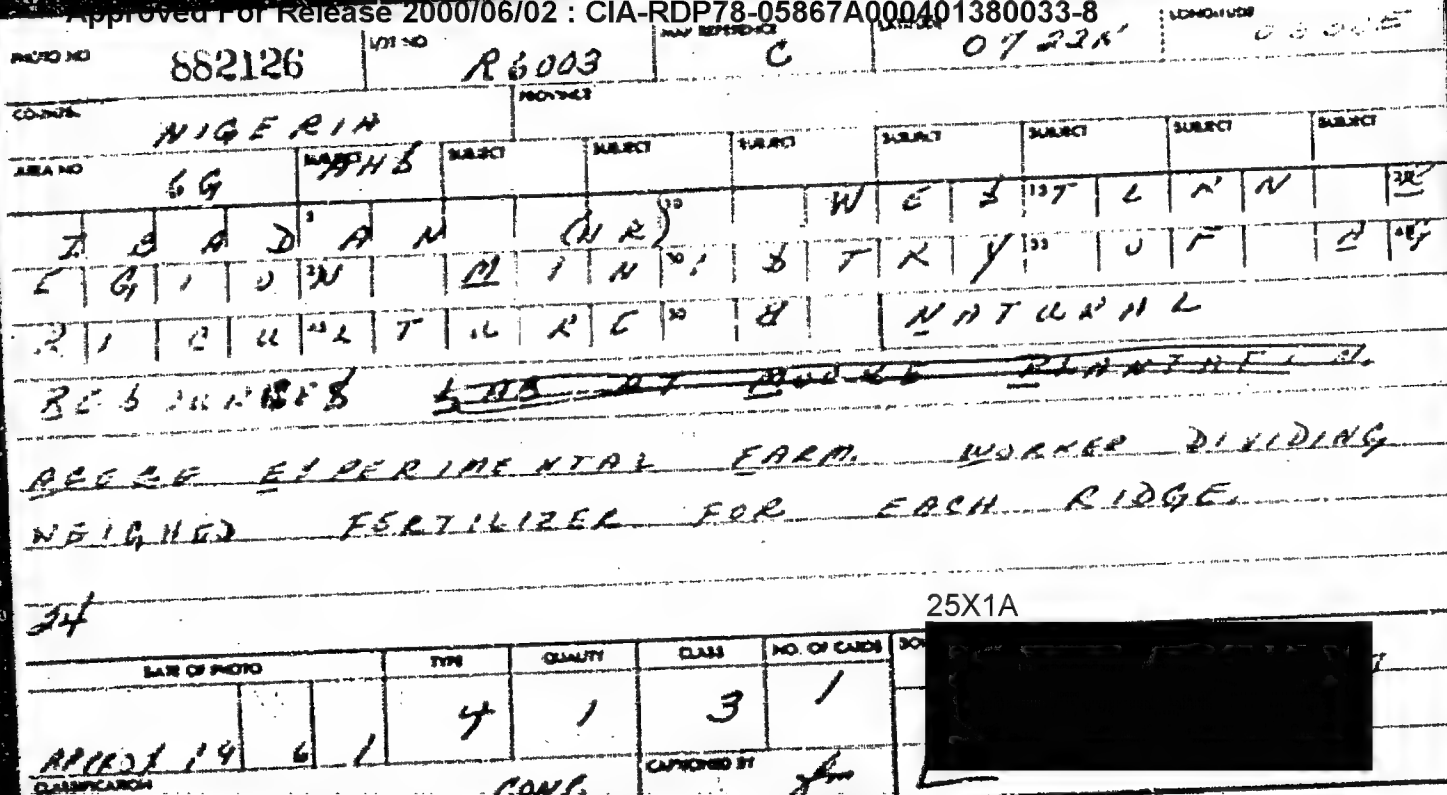 Approved For Release 2000/06/02 : CIA-RDP78-05867A000401380033-8
PHOTO NO 882126 LOT NO R6003 MAP REFERENCE C LATITUDE 0723N LONGITUDE
COUNTRY NIGERIA PROVINCE
AREA NO 6G SUBJECT SUBJECT SUBJECT SUBJECT SUBJECT SUBJECT SUBJECT SUBJECT
IBADAN (NR) WESTERN R
EGION MINISTRY OF AG
RICULTURE & NATURAL
RESOURCES
EXPERIMENTAL FARM. WORKER DIVIDING
WEIGHED FERTILIZER FOR EACH RIDGE.
24
25X1A
DATE OF PHOTO TYPE QUALITY CLASS NO. OF CARDS
APPROX 1961 4 1 3 1
CLASSIFICATION CAPTIONED BY